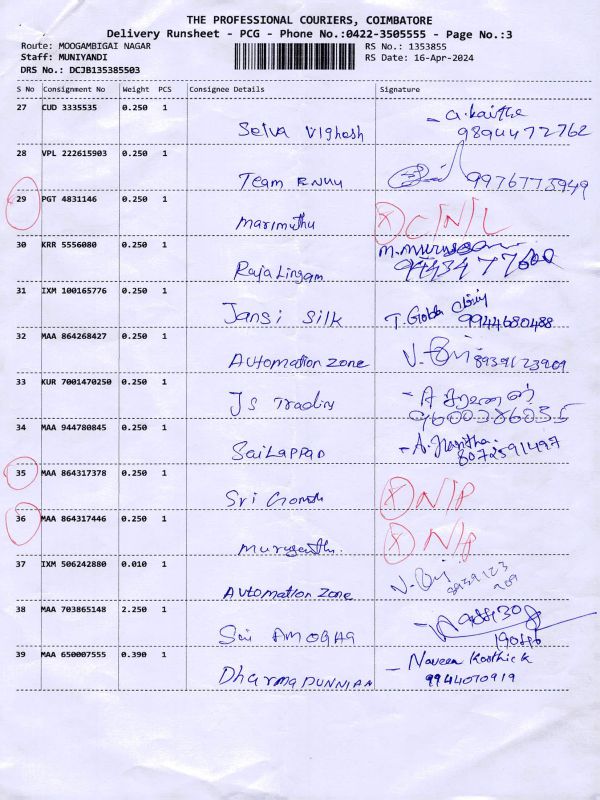 THE PROFESSIONAL COURIERS, COIMBATORE
Delivery Runsheet - PCG - Phone No.:0422-3505555 - Page No.:3
Route: MOOGAMBIGAI NAGAR RS No.: 1353855
Staff: MUNIYANDI RS Date: 16-Apr-2024
DRS No.: DCJB135385503
S No Consignment No Weight PCS Consignee Details Signature
27 CUD 3335535 0.250 1
Selva Vighesh
9894472762
28 VPL 222615903 0.250 1
Team 9976775949
29 PGT 4831146 0.250 1
marimuthu X C/N/L
30 KRR 5556080 0.250 1
Raja Lingam M.Murugesan
31 IXM 100165776 0.250 1
Jansi Silk T. 9944680488
32 MAA 864268427 0.250 1
Automation Zone 8939123909
33 KUR 7001470250 0.250 1
Js Trading - A
9600386055
34 MAA 944780845 0.250 1
SaiLappan - A. Haritha.
8072591497
35 MAA 864317378 0.250 1
Sri X N/P
36 MAA 864317446 0.250 1
X N/P
37 IXM 506242880 0.010 1
Automation Zone 8939123
909
38 MAA 703865148 2.250 1
Sri AMOGHA
39 MAA 650007555 0.390 1
- Naveen Karthick
Dharma PUNNIAN 9944070919